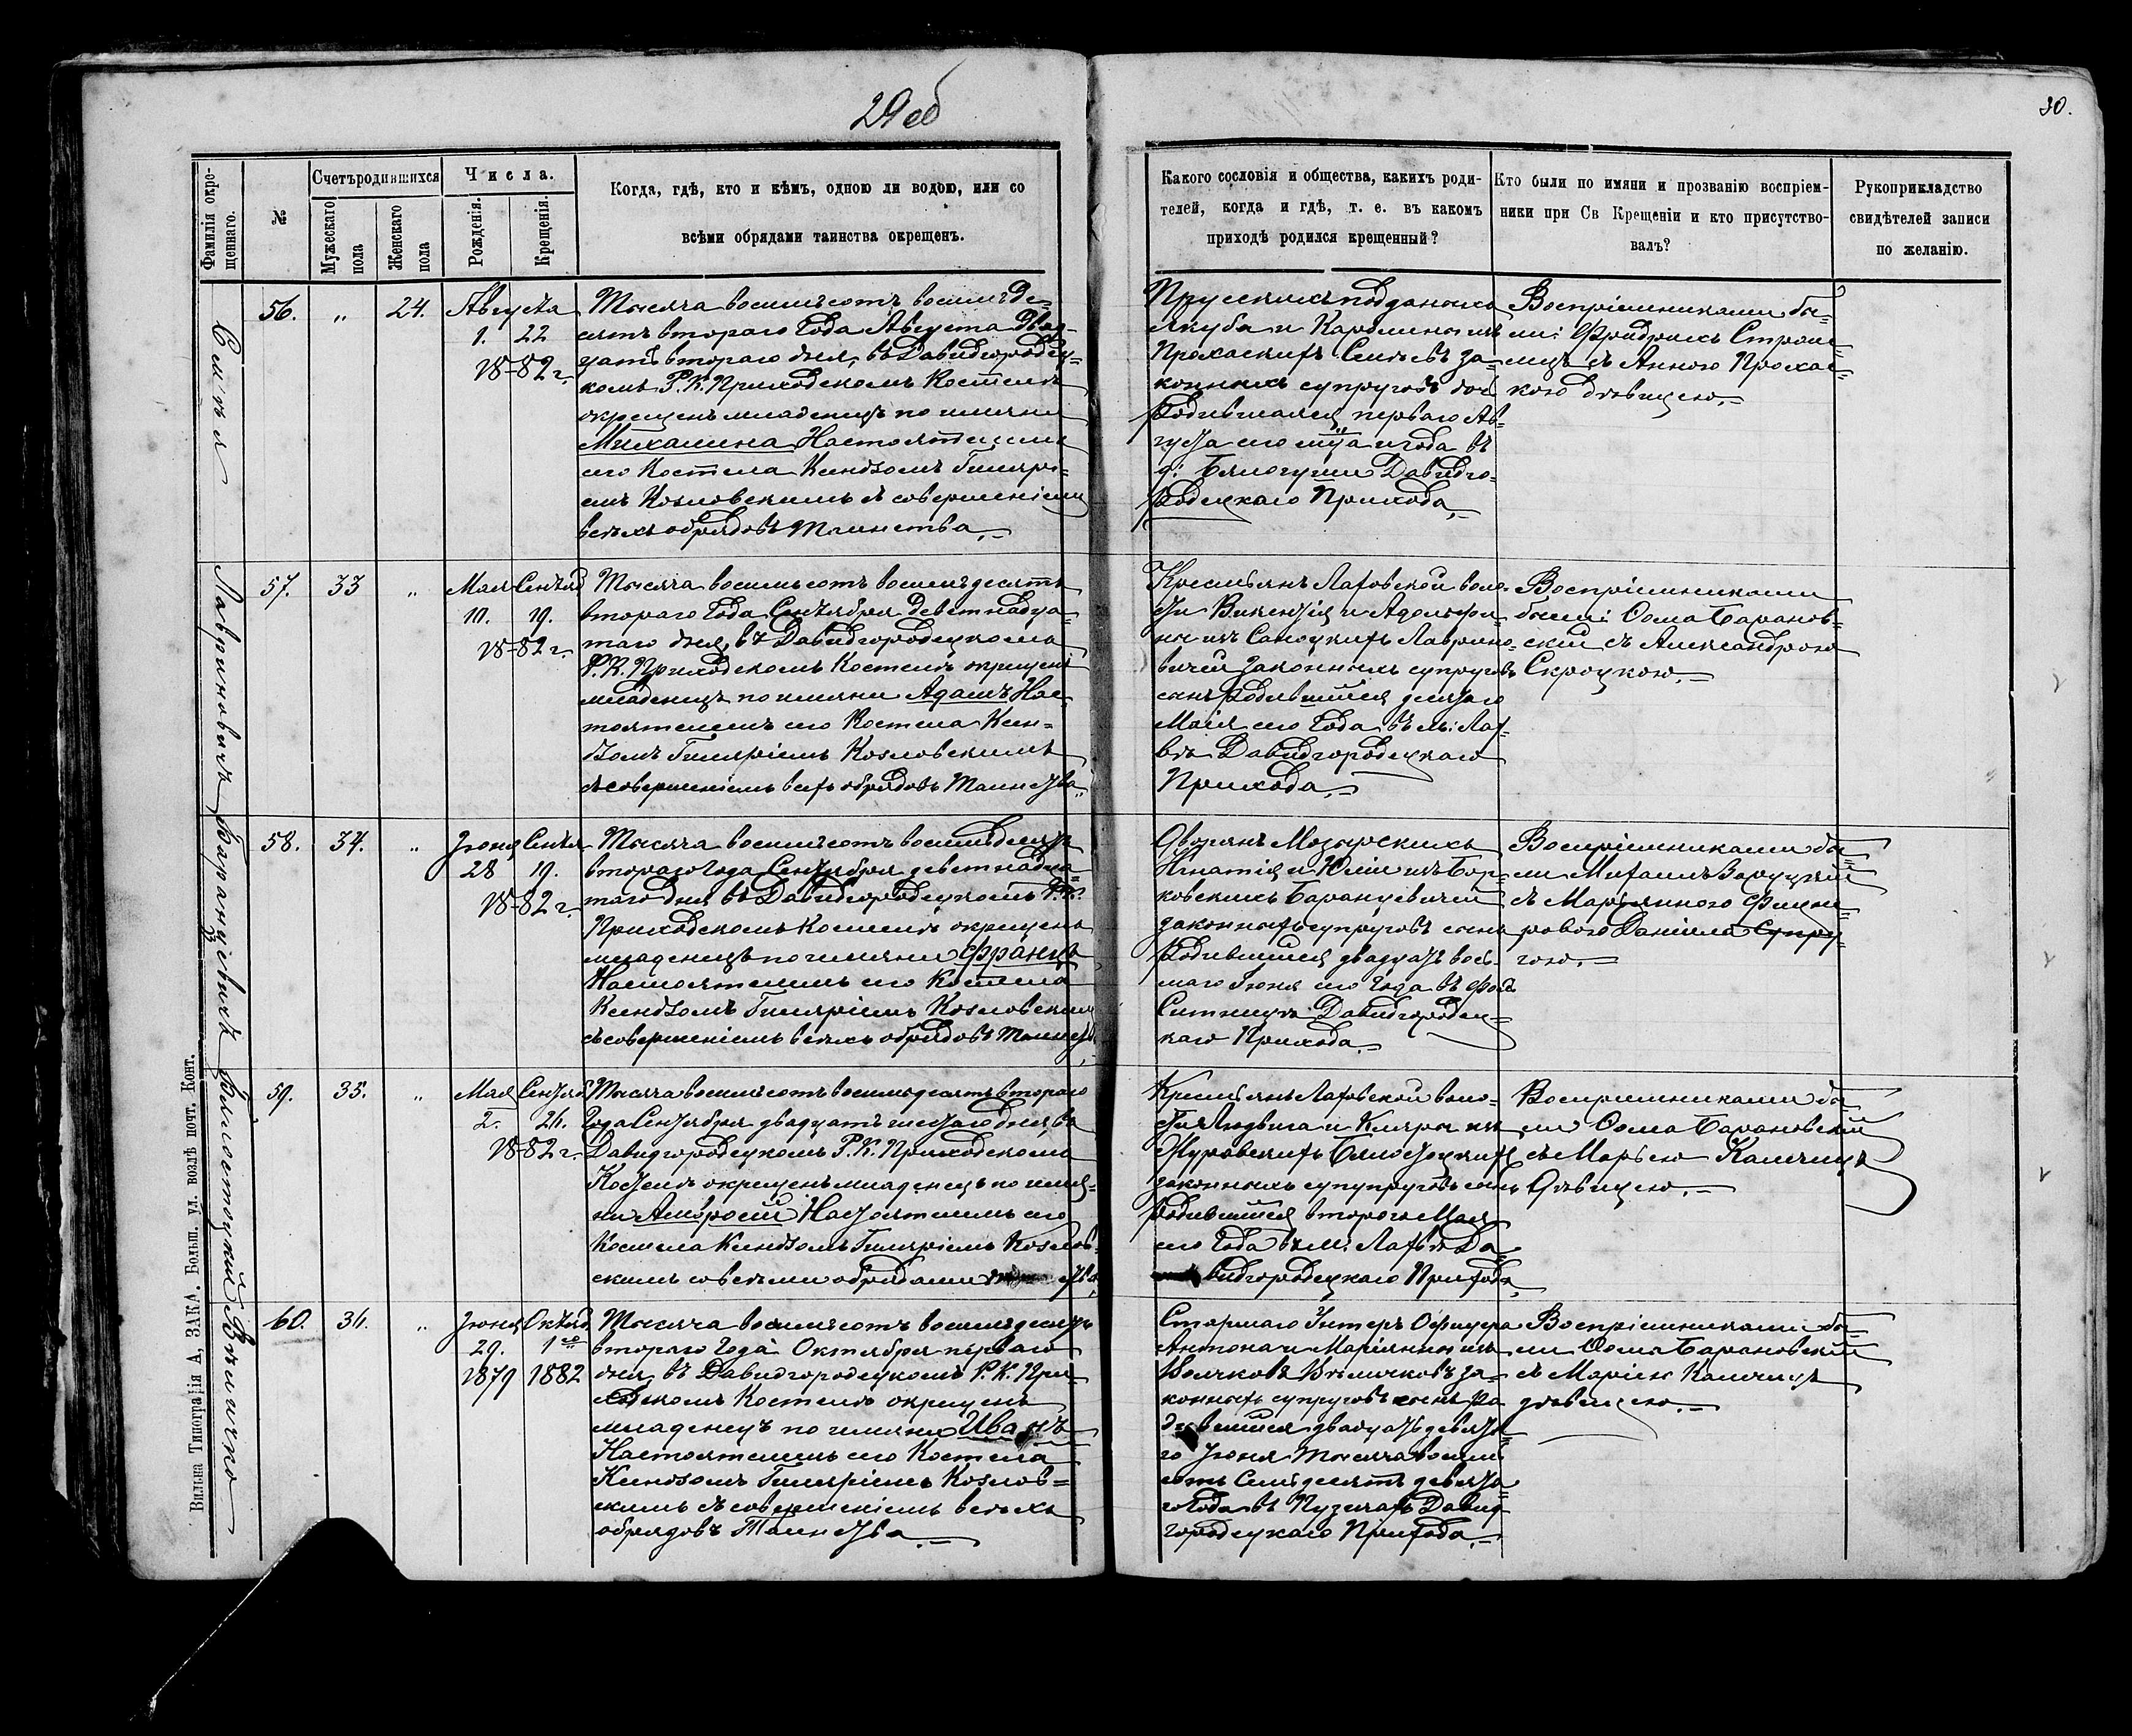 29об
30.
Фамилія окре-
щеннаго.
№
Счетъ родившихся
Мужескаго
пола
Женскаго
пола
Числа.
Рожденія.
Крещенія.
Когда, гдѣ, кто и кѣмъ, одною ли водою, или со
всѣми обрядами таинства окрещенъ.
Какого сословія и общества, какихъ роди-
телей, когда и гдѣ, т. е. въ какомъ
приходѣ родился крещенный?
Кто были по имяни и прозванію воспріем-
ники при Св Крещеніи и кто присутство-
валъ?
Рукоприкладство
свидѣтелей записи
по желанію.
56. „ 24. Августа
1. 22
18-82 г.
Тысяча восемьсотъ восемьде-
сятъ втораго Года Августа Двад-
цать втораго дня, въ Давидгородец-
комъ Р. К. Приходскомъ Костелѣ
окрещенъ младенецъ по имяни
Михалина Настоятелемъ
сего Костела Ксендзомъ Гиляріе-
емъ Козловскимъ съ совершеніемъ
всѣхъ обрядовъ Таинства.
Прусскихъ подданыхъ
Якуба и Каролины изъ
законныхъ супруговъ дочь
Родившаяся перваго Ав-
густа сего мца и года въ
Давидго-
Родецкаго Прихода.
Воспріемниками бы-
ли: Фридрихъ
съ Анною Прохас-
кою дѣвицею.
57. 33 „ Мая Сентяб
10. 19.
18-82 г.
Лавриновичъ
Тысяча восемьсотъ восемьдесятъ
втораго Года Сентября Девятнадца-
таго дня, въ Давидгородецкомъ
Р. К. Приходскомъ Костелѣ окрещенъ
младенецъ по имяни Адамъ Нас-
тоятелемъ сего Костела Ксен-
дзомъ Гиляріемъ Козловскимъ
съ совершеніемъ всѣхъ обрядовъ Таинства.
Крестьянъ Лахвской воло-
сти Викентія и Адольфи-
ны изъ Лаврино-
вичей законныхъ супруговъ
сынъ Родившійся десятаго
Маія сего Года въ м: Лах-
вѣ Давидгородецкаго
Прихода.
Воспріемниками
были: Ѳома Баранов-
скій съ Александрою
Скроцкою.
58. 34. „ Іюня Сентя
28 19.
18-82 г.
Баранцевичъ
Тысяча восемьсотъ восемьдесятъ
втораго Года Сентября девятнадца-
таго дня въ Давидгородецкомъ Р. К.
Приходскомъ Костелѣ окрещенъ
младенецъ по имяни Францъ
Настоятелемъ сего Костела
Ксендзомъ Гиляріемъ Козловскимъ
съ совершеніемъ всѣхъ обрядовъ Таинств
Дворянъ Мозырскихъ
Игнатія и Юліи изъ Бор-
ковскихъ Баранцевичей
законныхъ супруговъ сынъ
Родившійся двадцать вось-
маго Іюня сего Года въ фол.
Ситницѣ Давидгородец-
каго Прихода.
Воспріемниками бы-
ли Михаилъ
съ Маріянною
Даніила Супру-
гою.
59. 35. „ Мая Сентяб
2. 26.
18-82 г.
Бялостоцкій
Тысяча восемьсотъ восемьдесятъ втораго
Года Сентября двадцать шестаго дня, въ
Давидгородецкомъ Р. К. Приходскомъ
Костелѣ окрещенъ младенецъ по имя-
ни Амбросій Настоятелемъ сего
Костела Ксендзомъ Гиляріемъ Козлов-
скимъ со всѣми обрядами
Крестьянъ Лахвской воло-
сти Людвига и Клары изъ
Журавскихъ Бялостоцкихъ
законныхъ супупруговъ сынъ
Родившійся втораго Мая
сего Года въ м: Лахвѣ Да-
видгородецкаго Прихода.
Воспріемниками бы-
ли Ѳома Барановскій
съ Марьею
Дѣвицею.
60. 36. „ Іюня Октяб
29. 1го
1879 1882
Величко
Тысяча восемьсотъ восемьдесятъ
втораго Года Октября перваго
дня, въ Давидгородецкомъ Р. К. При-
ходскомъ Костелѣ окрещенъ
младенецъ по имяни Иванъ
Настоятелемъ сего Костела
Ксендзомъ Гиляріемъ Козлов-
скимъ съ совершеніемъ всѣхъ
обрядовъ Таинства.
Старшаго Унтеръ Офицера
Антона и Маріянны изъ
за-
конныхъ супруговъ сынъ Ро
дившійся двадцать девята-
го Іюня Тысяча восемь
сотъ Семьдесятъ девята-
го Года въ Пузичахъ Давид-
городецкаго Прихода.
Воспріемниками бы-
ли Ѳома Барановскій
съ Маріею
дѣвицею.
Вильна Типографія А, ЗАКА. Больш. ул. возлѣ почт. Конт.